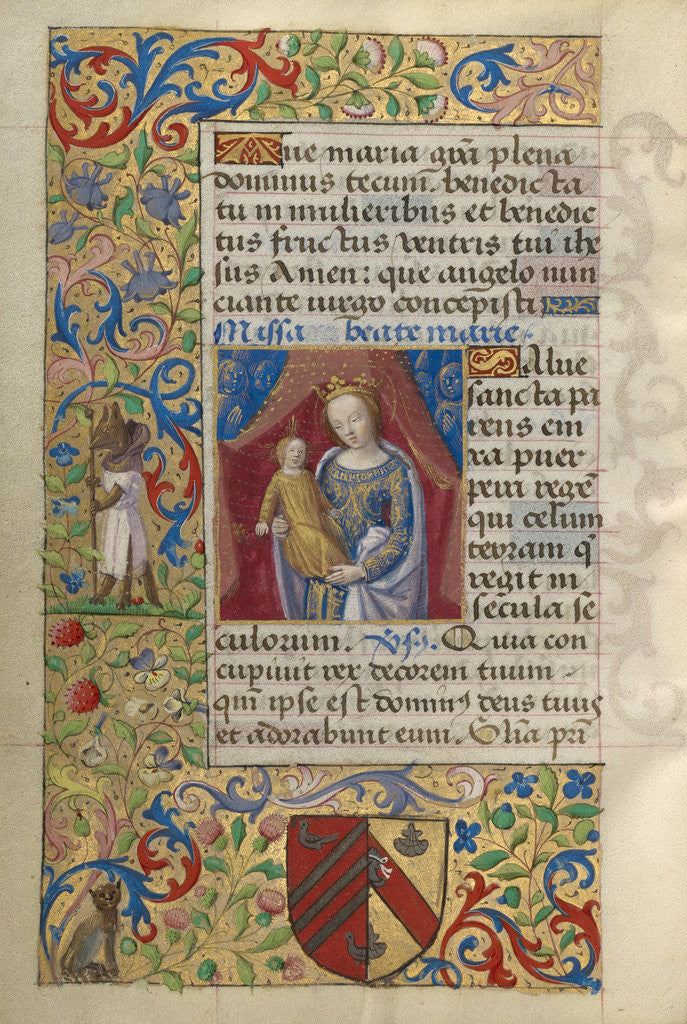 Aue maria gr̃a plena
dominus tecum. benedicta
tu in mulieribus et benedic
tus fructus ventris tui ihe
sus Amen: que angelo nun
ciante virgo concepisti
Missa beate marie
Salue
sancta pa
rens eni
xa puer
pera regẽ
qui celum
terram q̃
regit in
secula se
culorum. Vs̃. Quia con
cupiuit rex decorem tuum
qm̃ ipse est domin⁹ deus tuus
et adorabunt eum. Gl̃ia pr̃i